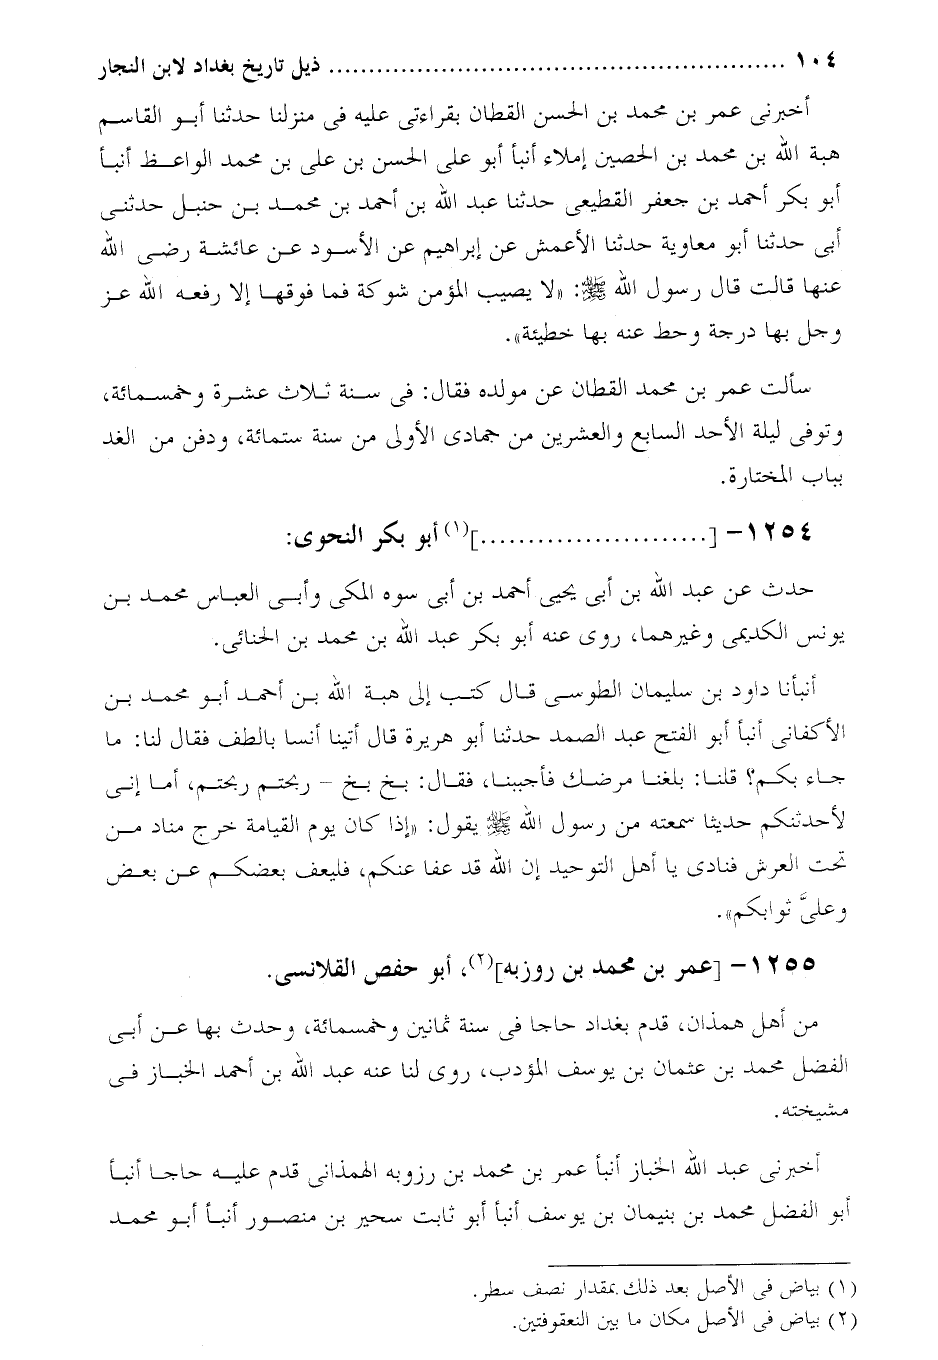 ١٠٤ ........................................................ ذيل تاريخ بغداد لابن النجار
أخبرنى عمر بن محمد بن الحسن القطان بقراءتى عليه فى منزلنا حدثنا أبو القاسم
هبة الله بن محمد بن الحصين إملاء أنبأ أبو على الحسن بن على بن محمد الواعظ أنبأ
أبو بكر أحمد بن جعفر القطيعى حدثنا عبد الله بن أحمد بن محمد بن حنبل حدثنى
أبى حدثنا أبو معاوية حدثنا الأعمش عن إبراهيم عن الأسود عن عائشة رضى الله
عنها قالت قال رسول الله ﷺ: «لا يصيب المؤمن شوكة فما فوقها إلا رفعه الله عز
وجل بها درجة وحط عنه بها خطيئة».
سألت عمر بن محمد القطان عن مولده فقال: فى سنة ثلاث عشرة وخمسمائة،
وتوفى ليلة الأحد السابع والعشرين من جمادى الأولى من سنة ستمائة، ودفن من الغد
بباب المختارة.
١٢٥٤- [........................](١) أبو بكر النحوى:
حدث عن عبد الله بن أبى يحيى أحمد بن أبى سوه المكى وأبى العباس محمد بن
يونس الكديمى وغيرهما، روى عنه أبو بكر عبد الله بن محمد بن الحنائى.
أنبأنا داود بن سليمان الطوسى قال كتب إلى هبة الله بن أحمد أبو محمد بن
الأكفانى أنبأ أبو الفتح عبد الصمد حدثنا أبو هريرة قال أتينا أنسا بالطف فقال لنا: ما
جاء بكم؟ قلنا: بلغنا مرضك فأجبينا، فقال: بخ بخ - ربحتم ربحتم، أما إنى
لأحدثنكم حديثا سمعته من رسول الله ﷺ يقول: «إذا كان يوم القيامة خرج مناد من
تحت العرش فنادى يا أهل التوحيد إن الله قد عفا عنكم، فليعف بعضكم عن بعض
وعلىَّ ثوابكم».
١٢٥٥- [عمر بن محمد بن روزبه](٢)، أبو حفص القلانسى.
من أهل همذان، قدم بغداد حاجا فى سنة ثمانين وخمسمائة، وحدث بها عن أبى
الفضل محمد بن عثمان بن يوسف المؤدب، روى لنا عنه عبد الله بن أحمد الخباز فى
مشيخته.
أخبرنى عبد الله الخباز أنبأ عمر بن محمد بن رزوبه الهمذانى قدم عليه حاجا أنبأ
أبو الفضل محمد بن بنيمان بن يوسف أنبأ أبو ثابت سحير بن منصور أنبأ أبو محمد
(١) بياض فى الأصل بعد ذلك بمقدار نصف سطر.
(٢) بياض فى الأصل مكان ما بين النعقوفتين.